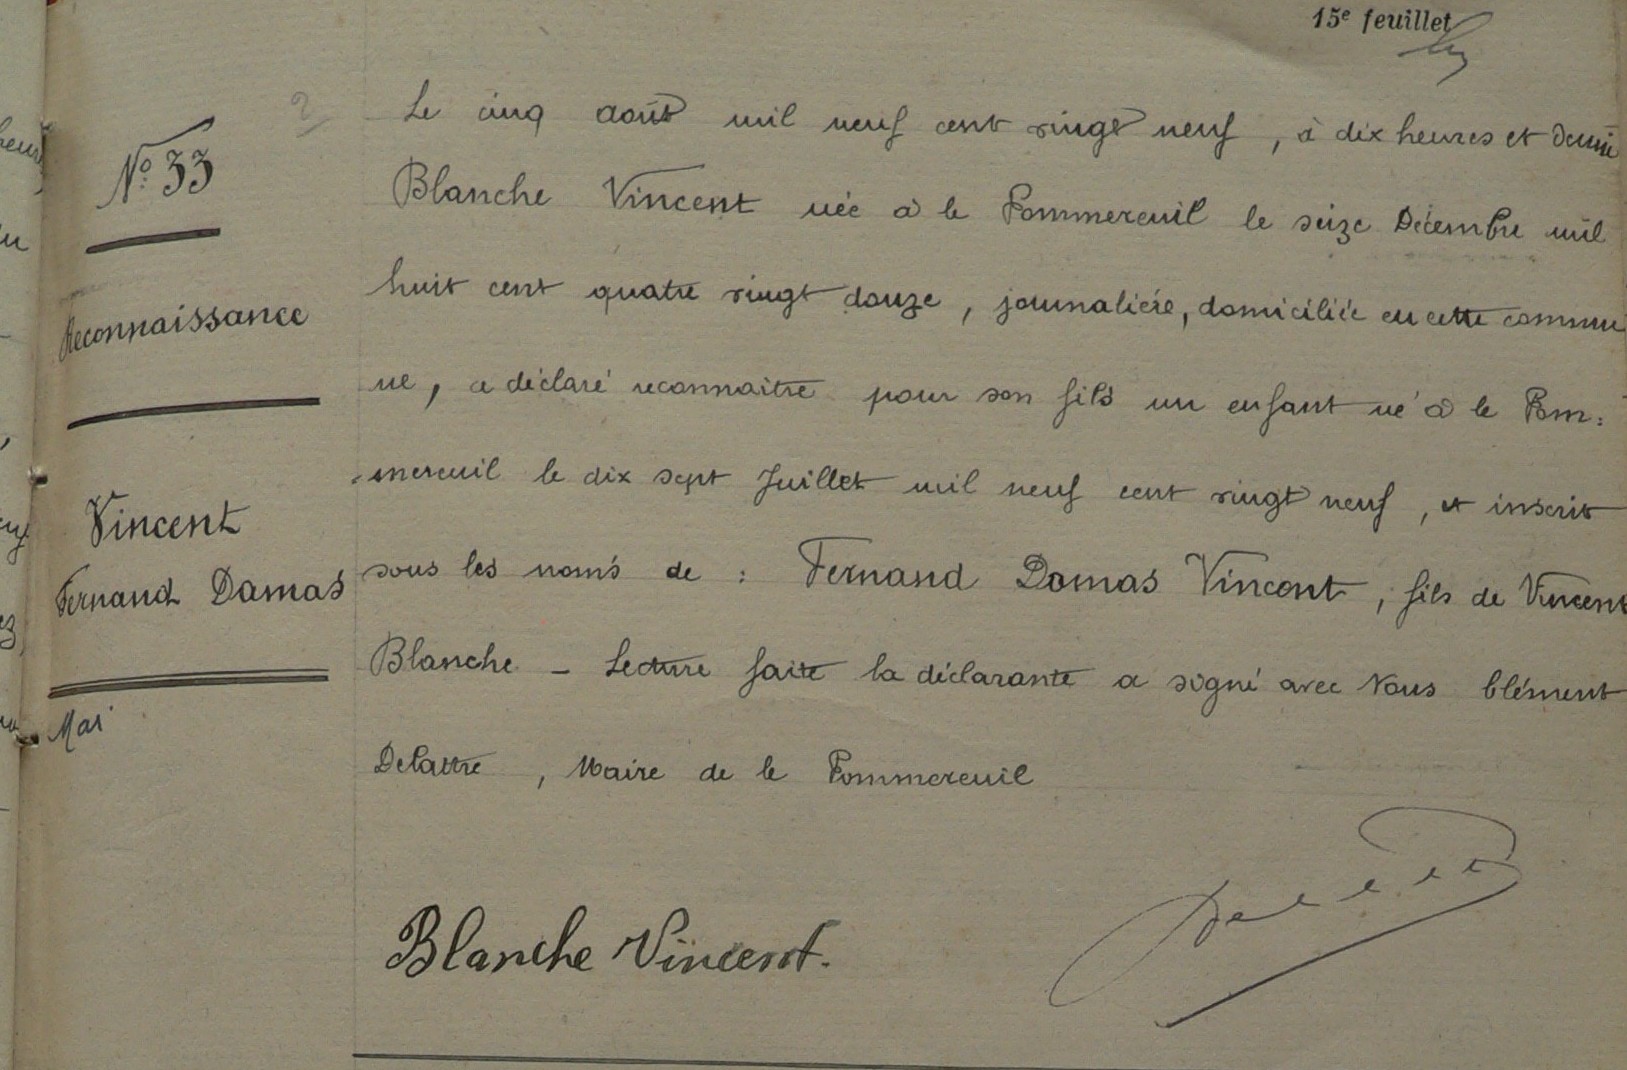 15e feuillet
No. 33
Reconnaissance
Vincent
Fernand Damas
Mai
Le cinq août mil neuf cent vingt neuf, à dix heures et demie
Blanche Vincent née à le Pommereuil le seize Décembre mil
huit cent quatre vingt douze, journalière, domiciliée en cette commu
ne, a déclaré reconnaitre pour son fils un enfant né à le Pom:
mereuil le dix sept Juillet mil neuf cent vingt neuf, et inscrit
sous les noms de : Fernand Damas Vincent, fils de Vincent
Blanche - Lecture faite la déclarante a signé avec Nous Clément
Delattre, Maire de le Pommereuil
Blanche Vincent.